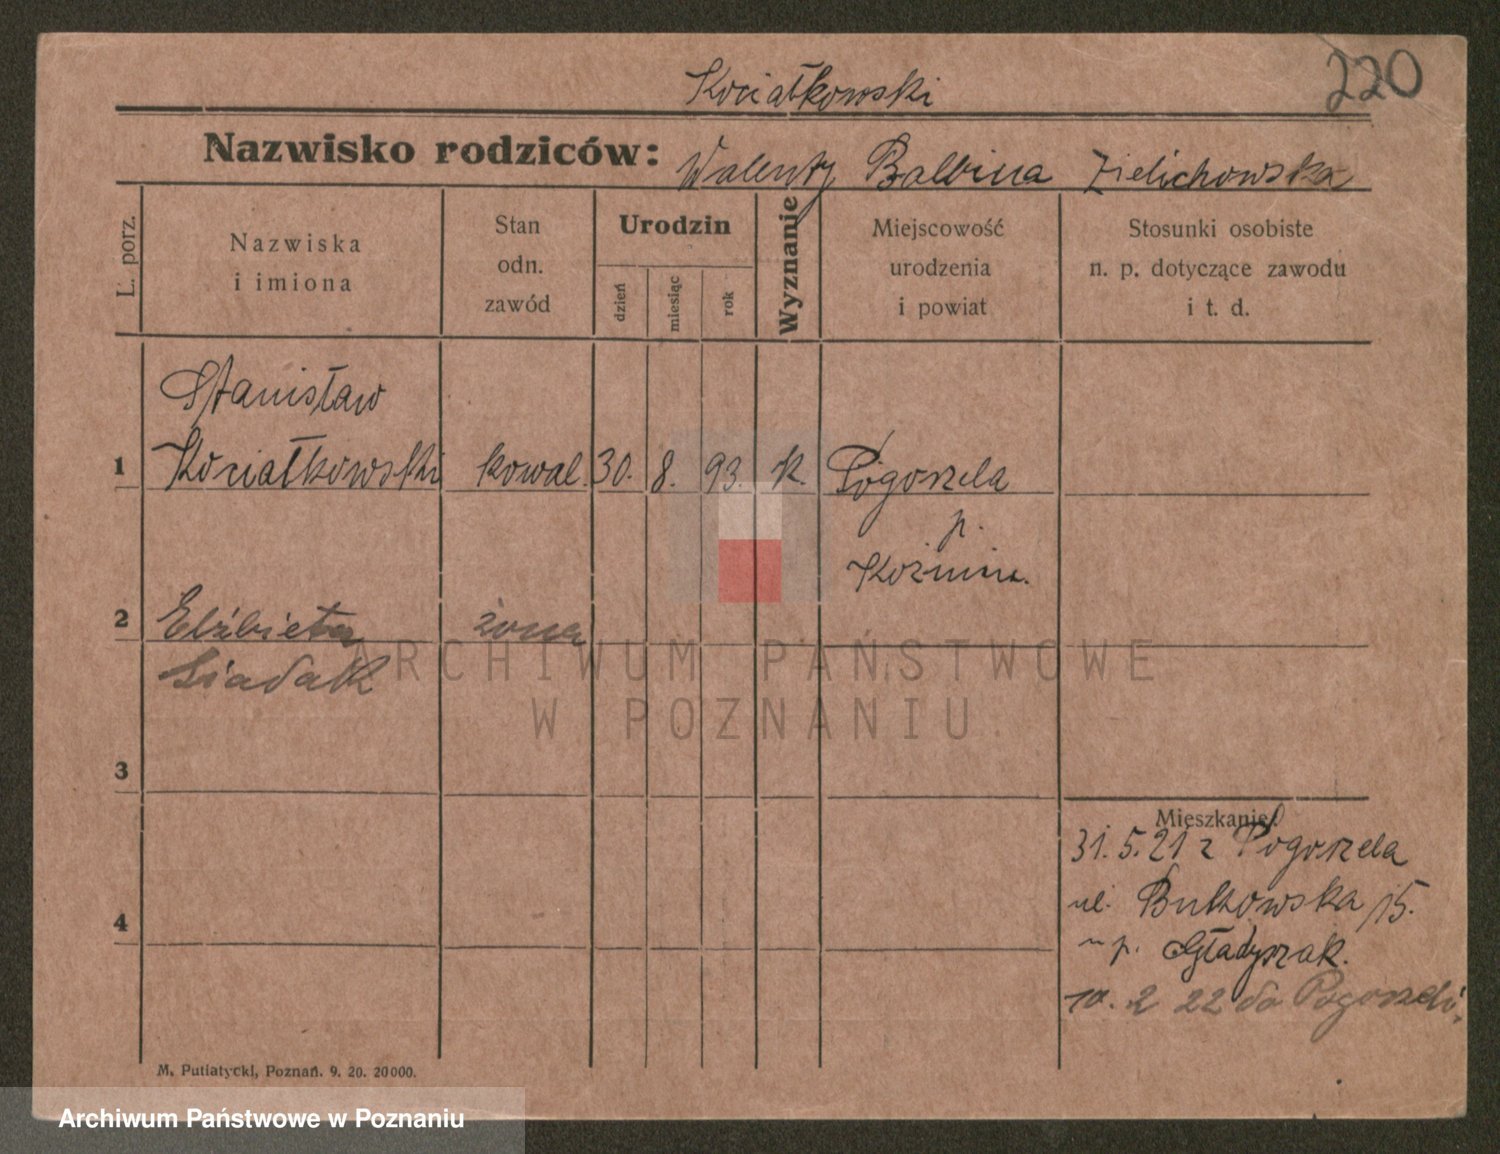 220
Kociałkowski
Nazwisko rodziców: Walenty Balbina Zielichowska
L. porz.
Nazwiska
i imiona
Stan
odn.
zawód
Urodzin
dzień
miesiąc
rok
Wyznanie
Miejscowość
urodzenia
i powiat
Stosunki osobiste
n. p. dotyczące zawodu
i t. d.
Stanisław
1 Kociałkowski kowal. 30. 8. 93. k. Pogorzela
p.
Koźmin.
2 Elżbieta żona
Siadak
ARCHIWUM PAŃSTWOWE
W POZNANIU
3
Mieszkanie:
31. 5. 21 z Pogorzela
ul. Bukowska 15.
4
u p. Gładyszak.
10. 2 22 do Pogorzeli.
M. Putiatycki, Poznań. 9. 20. 20000.
Archiwum Państwowe w Poznaniu